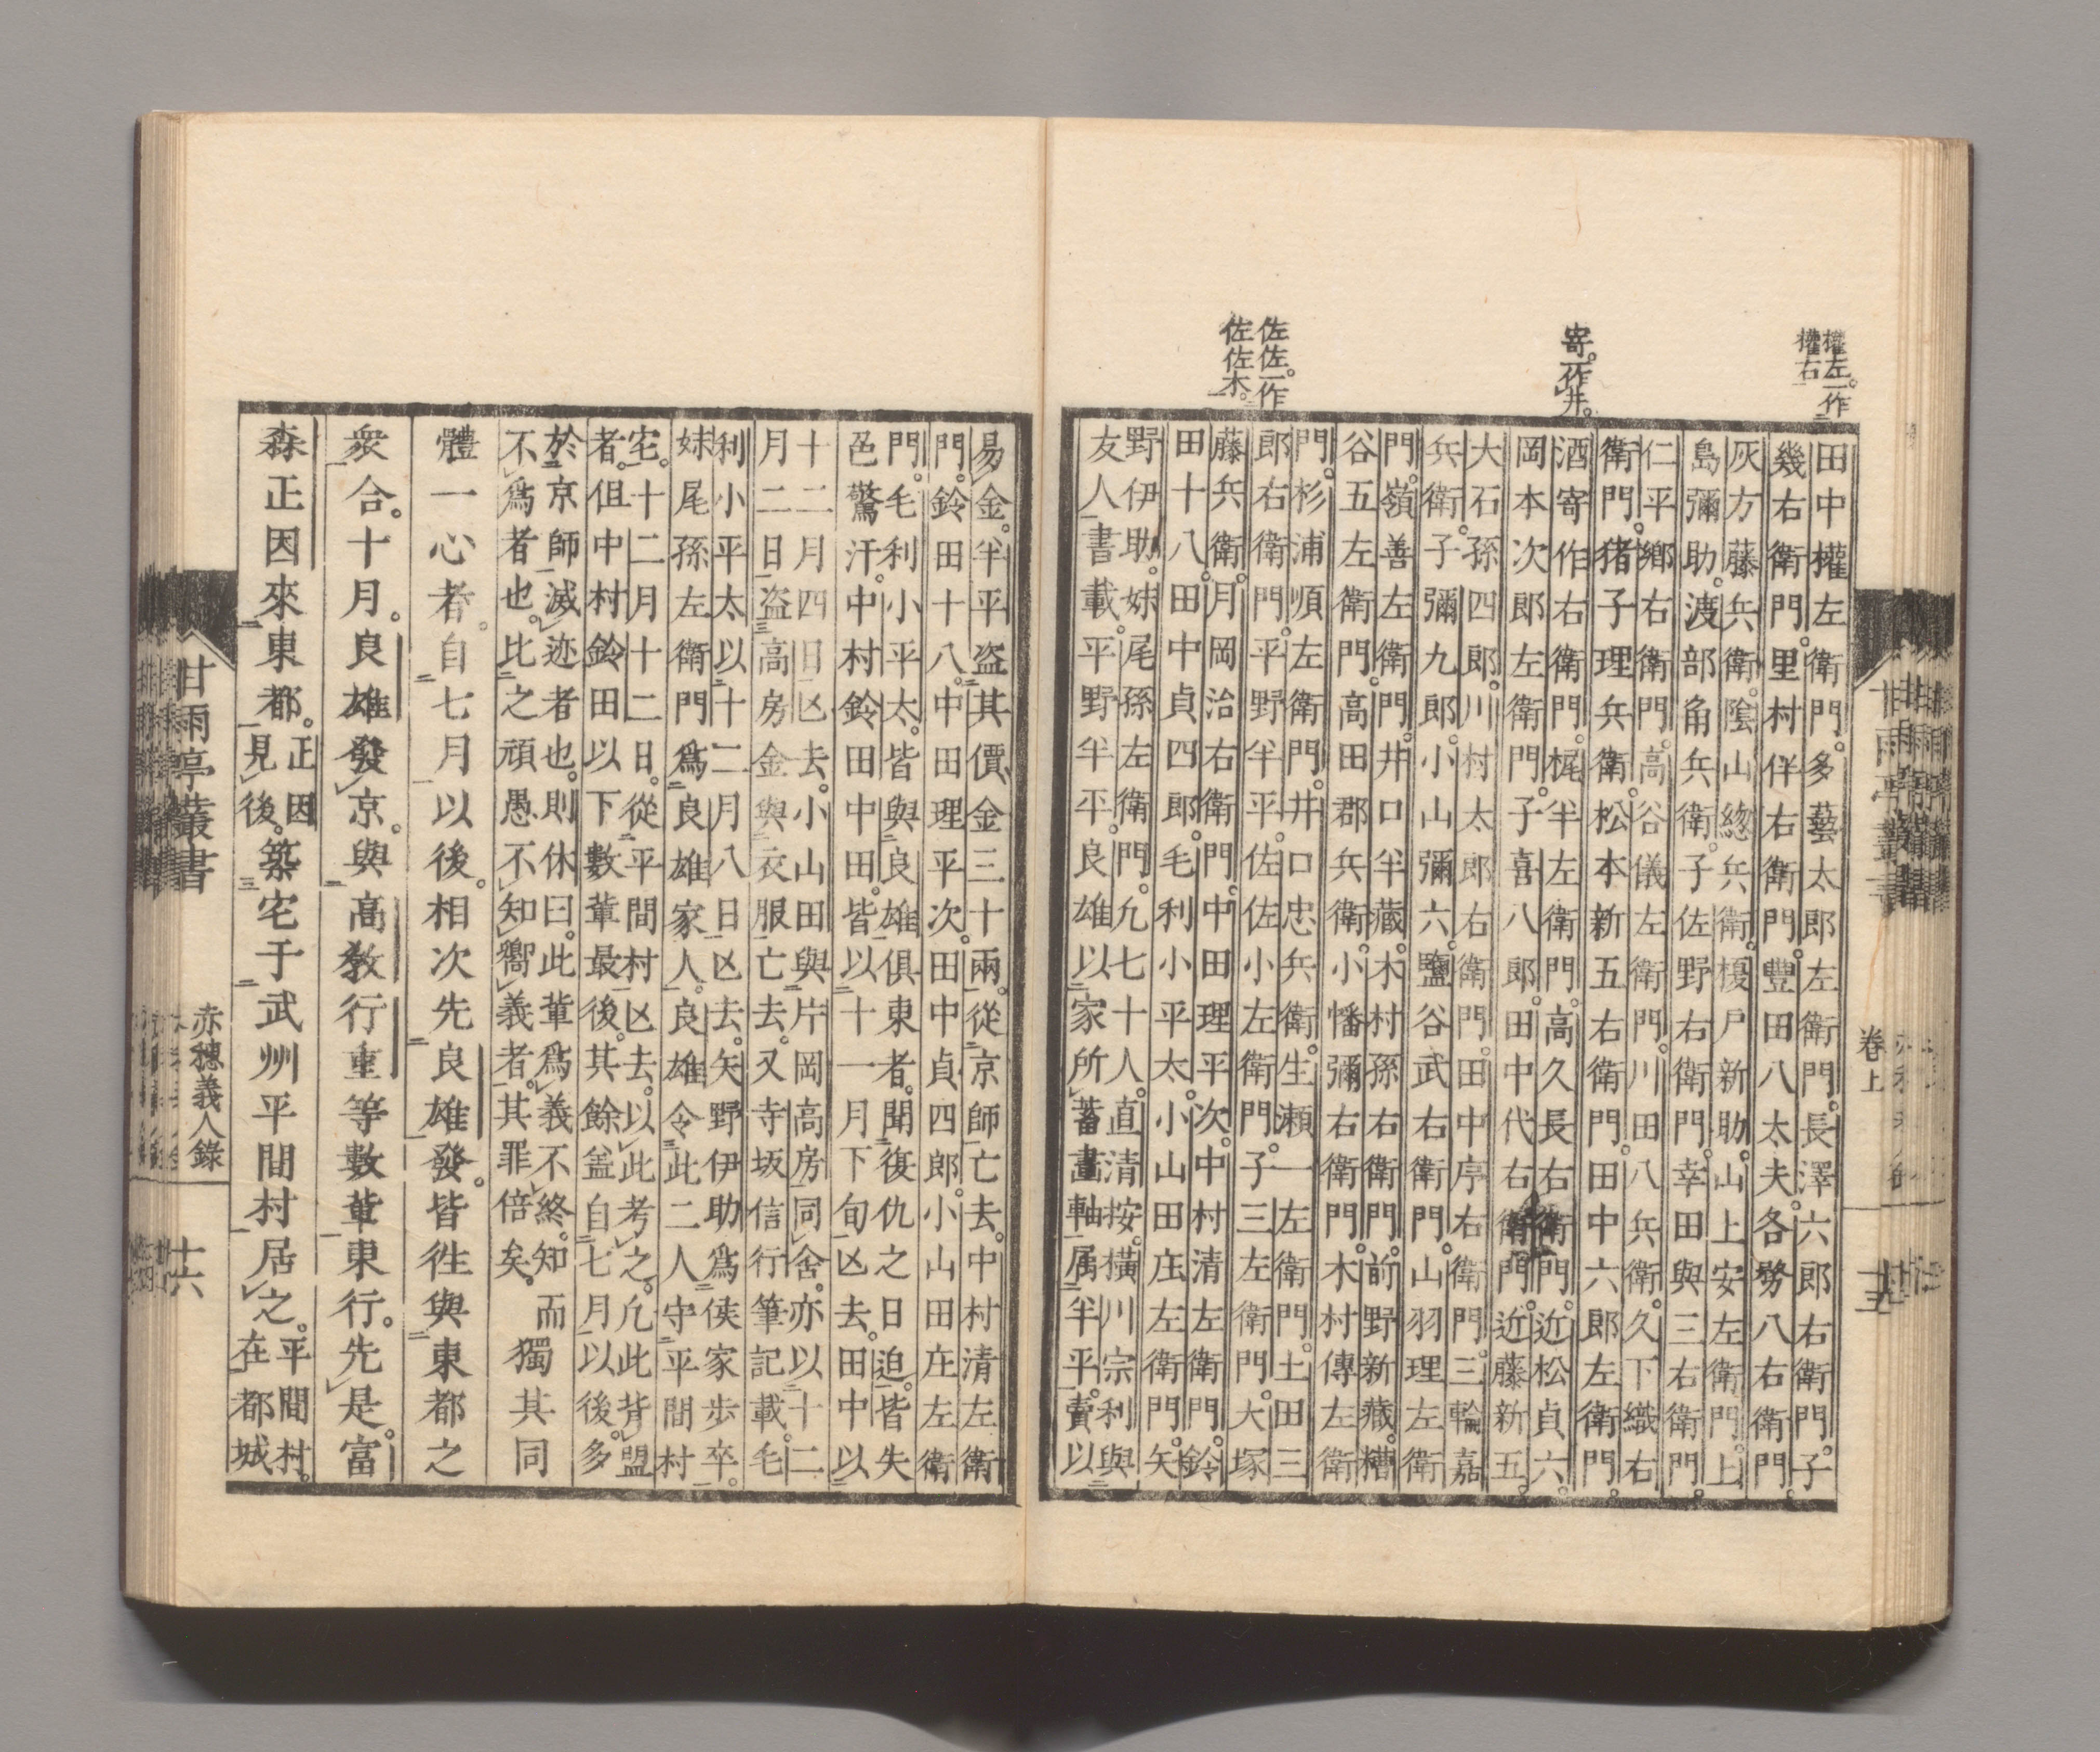 權左。一作
權右
寄。一作井。
佐佐。一作
佐佐木。
田中權左衛門。多藝太郎左衛門。長澤六郎右衛門。子
幾右衛門。里村伴右衛門。豐田八太夫。各務八右衛門。
灰方藤兵衛。陰山總兵衛。榎戶新助。山上安左衛門。上
島彌助。渡部角兵衛。子佐野右衛門。幸田與三右衛門。
仁平鄉右衛門。高谷儀左衛門。川田八兵衛。久下織右
衛門。猪子理兵衛。松本新五右衛門。田中六郎左衛門。
酒寄作右衛門。梶半左衛門。高久長右衛門。近松貞六。
岡本次郎左衛門。子喜八郎。田中代右衛門。近藤新五。
大石孫四郎。川村太郎右衛門。田中序右衛門。三輪嘉
兵衛。子彌九郎。小山彌六。鹽谷武右衛門。山羽理左衛
門。嶺善左衛門。井口半藏。木村孫右衛門。前野新藏。糟
谷五左衛門。高田郡兵衛。小幡彌右衛門。木村傳左衛
門。杉浦順左衛門。井口忠兵衛。生瀨一左衛門。土田三
郎右衛門。平野半平。佐佐小左衛門。子三左衛門。大塚
藤兵衛。月岡治右衛門。中田理平次。中村清左衛門。鈴
田十八。田中貞四郎。毛利小平太。小山田庄左衛門。矢
野伊助。妹尾孫左衛門。凢七十人。直清按。橫川宗利與
友人書載。平野半平。良雄以家所蓄畫軸属半平。賣以
卷上
易金。半平盗其價金三十兩。從京師亡去。中村清左衛
門。鈴田十八。中田理平次。田中貞四郎。小山田庄左衛
門。毛利小平太。皆與良雄俱東者。聞復仇之日迫。皆失
色驚汗。中村鈴田中田。皆以十一月下旬亾去。田中以
十二月四日亾去。小山田與片岡高房同舍。亦以十二
月二日盗高房金與衣服亡去。又寺坂信行筆記載。毛
利小平太以十二月八日亾去。矢野伊助爲俠家步卒。
妹尾孫左衛門爲良雄家人。良雄令此二人守平間村
宅。十二月十二日。從平間村亾去。以此考之。凢此背盟
者。但中村鈴田以下數輩最後。其餘盖自七月以後。多
於京師滅迹者也。則休曰。此輩爲義不終。知
不爲者也。比之頑愚不知嚮義者。其罪倍矣。
而獨其同
體一心者。自七月以後。相次先良雄發。皆徃與東都之
衆合。十月。良雄發京。與高教行重等數輩東行。先是。富
森正因來東都。
正因
見後。
築宅于武州平間村居之。
平間村。
在都城
甘雨亭叢書
赤穗義人錄
十六